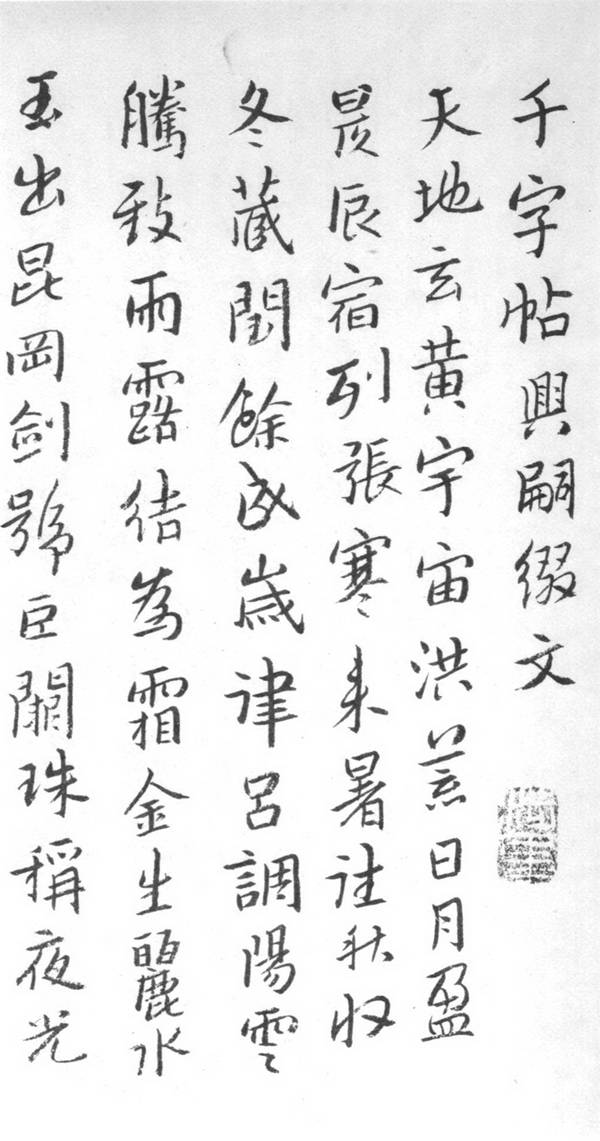 千字帖興嗣綴文
天地玄黃宇宙洪荒日月盈
昃辰宿列張寒来暑往秋収
冬蔵閏餘成歲律呂調陽雲
騰致雨露结為霜金生麗水
玉出昆岡劍號巨闕珠稱夜光